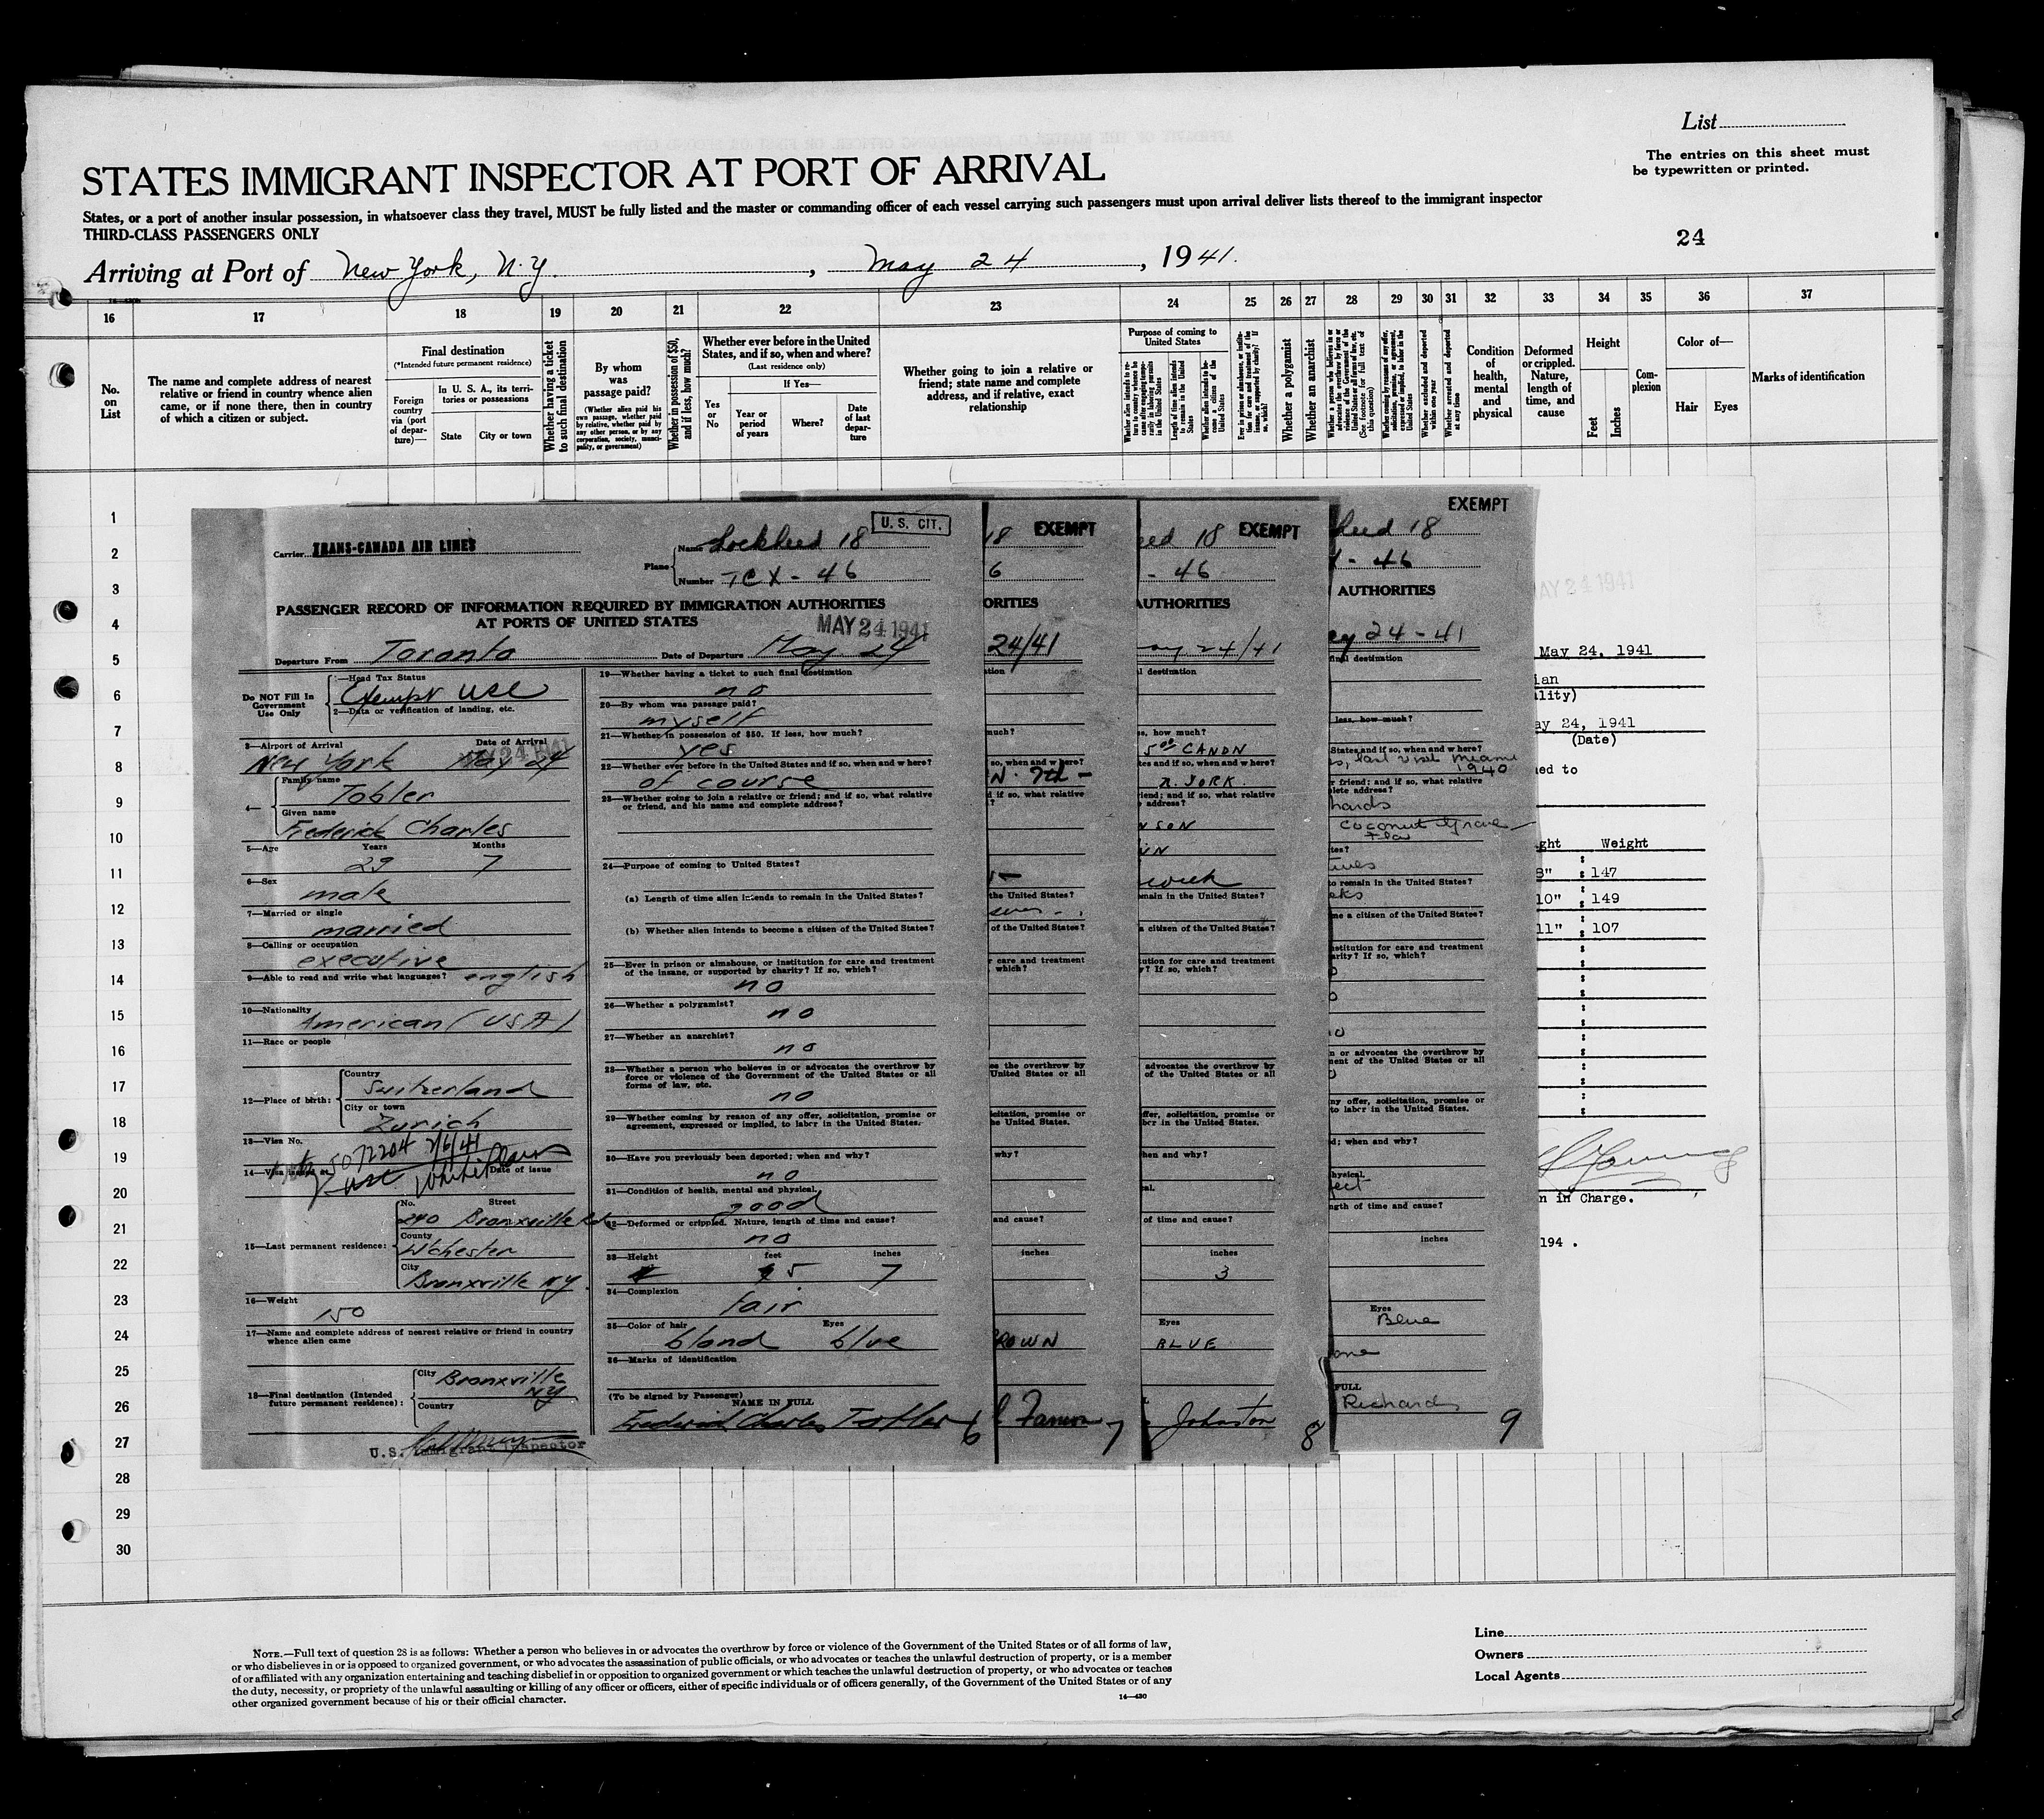 List
The entries on this sheet must
be typewritten or printed.
STATES IMMIGRANT INSPECTOR AT PORT OF ARRIVAL
States, or a port of another insular possession, in whatsoever class they travel, MUST be fully listed and the master or commanding officer of each vessel carrying such passengers must upon arrival deliver lists thereof to the immigrant inspector
THIRD-CLASS PASSENGERS ONLY
24
Arriving at Port of New York, N.Y., May 24, 1941.
16 17 18 19 20 21 22 23 24 25 26 27 28 29 30 31 32 33 34 35 36 37
No. on List
The name and complete address of nearest
relative or friend in country whence alien
came, or if none there, then in country
of which a citizen or subject.
Final destination
(*Intended future permanent residence)
Foreign
country
via (port
of depar-
ture)—
In U. S. A., its terri-
tories or possessions
State
City or town
Whether having a ticket
to such final destination
By whom
was
passage paid?
(Whether alien paid his
own passage, whether paid
by relative, whether paid by
any other person, or by any
corporation, society, munici-
pality, or government)
Whether in possession of $50,
and if less, how much?
Whether ever before in the United
States, and if so, when and where?
(Last residence only)
If Yes—
Yes
or
No
Year or
period
of years
Where?
Date
of last
depar-
ture
Whether going to join a relative or
friend; state name and complete
address, and if relative, exact
relationship
Purpose of coming to
United States
Length of time alien intends
to remain in the United
States
Whether alien intends to be-
come a citizen of the
United States
Whether a polygamist
Whether an anarchist
Whether excluded and deported
within one year
Whether arrested and deported
at any time
Condition
of
health,
mental
and
physical
Deformed
or crippled.
Nature,
length of
time, and
cause
Height
Feet
Inches
Com-
plexion
Color of—
Hair
Eyes
Marks of identification
1
2
3
4
5
6
7
8
9
10
11
12
13
14
15
16
17
18
19
20
21
22
23
24
25
26
27
28
29
30
U. S. CIT.
Carrier TRANS-CANADA AIR LINES
Plane Name Lockheed 18
Number TCX-46
PASSENGER RECORD OF INFORMATION REQUIRED BY IMMIGRATION AUTHORITIES
AT PORTS OF UNITED STATES
MAY 24 1941
Departure From Toronto Date of Departure May 24
Do NOT Fill In
Government
Use Only
1—Head Tax Status
Exempt USC
2—Data or verification of landing, etc.
3—Airport of Arrival Date of Arrival
New York May 24
MAY 24 1941
4—
Family name
Tobler
Given name
Frederick Charles
5—Age Years Months
29 7
6—Sex
male
7—Married or single
married
8—Calling or occupation
executive
9—Able to read and write what languages? english
10—Nationality
American (USA)
11—Race or people
12—Place of birth:
Country
Switzerland
City or town
Zurich
13—Visa No.
5072204 2/6/41
14—Visa issued at Date of issue
White Plains
15—Last permanent residence:
No. Street
240 Bronxville Rd
County
W'chester
City
Bronxville NY
16—Weight
150
17—Name and complete address of nearest relative or friend in country
whence alien came
18—Final destination (Intended
future permanent residence):
City Bronxville
NY
Country
U.S. Immigrant Inspector
19—Whether having a ticket to such final destination
no
20—By whom was passage paid?
myself
21—Whether in possession of $50. If less, how much?
yes
22—Whether ever before in the United States and if so, when and where?
of course
23—Whether going to join a relative or friend; and if so, what relative
or friend, and his name and complete address?
24—Purpose of coming to United States?
(a) Length of time alien intends to remain in the United States?
(b) Whether alien intends to become a citizen of the United States?
25—Ever in prison or almshouse, or institution for care and treatment
of the insane, or supported by charity? If so, which?
no
26—Whether a polygamist?
no
27—Whether an anarchist?
no
28—Whether a person who believes in or advocates the overthrow by
force or violence of the Government of the United States or all
forms of law, etc.
no
29—Whether coming by reason of any offer, solicitation, promise or
agreement, expressed or implied, to labor in the United States.
30—Have you previously been deported; when and why?
no
31—Condition of health, mental and physical.
good
32—Deformed or crippled. Nature, length of time and cause?
no
33—Height feet inches
5 7
34—Complexion
fair
35—Color of hair Eyes
blond blue
36—Marks of identification
(To be signed by Passenger)
NAME IN FULL
Frederick Charles Tobler 6
18 EXEMPT
6
ORITIES
24/41
much?
so, when and where?
N. 7th -
d if so, what relative
the United States?
of the United States?
r care and treatment
which?
es the overthrow by
United States or all
icitation, promise or
he United States.
why?
and cause?
inches
ROWN
7
eed 18 EXEMPT
- 46
AUTHORITIES
ay 24/41
l destination
s, how much?
5.00 CANDN
tes and if so, when and where?
N. YORK
iend; and if so, what relative
address?
NSON
main in the United States?
a citizen of the United States?
ution for care and treatment
y? If so, which?
advocates the overthrow by
of the United States or all
ffer, solicitation, promise or
bor in the United States.
hen and why?
al.
of time and cause?
inches
3
Eyes
BLUE
Johnston
8
EXEMPT
heed 18
X - 46
AUTHORITIES
ay 24-41
final destination
less, how much?
States and if so, when and where?
s, last visit Miami
1940
r friend; and if so, what relative
lete address?
hards
Coconut Grove
Fla
tes?
to remain in the United States?
eks
me a citizen of the United States?
nstitution for care and treatment
arity? If so, which?
n or advocates the overthrow by
ment of the United States or all
ny offer, solicitation, promise or
to labor in the United States.
d; when and why?
hysical.
fect
ngth of time and cause?
inches
Eyes
Blue
one
FULL
Richards
9
MAY 24 1941
May 24, 1941
ian
ality)
ay 24, 1941
(Date)
ed to
ght Weight
8" : 147
10" : 149
11" : 107
n in Charge.
194 .
NOTE.—Full text of question 28 is as follows: Whether a person who believes in or advocates the overthrow by force or violence of the Government of the United States or of all forms of law,
or who disbelieves in or is opposed to organized government, or who advocates the assassination of public officials, or who advocates or teaches the unlawful destruction of property, or is a member
of or affiliated with any organization entertaining and teaching disbelief in or opposition to organized government or which teaches the unlawful destruction of property, or who advocates or teaches
the duty, necessity, or propriety of the unlawful assaulting or killing of any officer or officers, either of specific individuals or of officers generally, of the Government of the United States or of any
other organized government because of his or their official character.
14—430
Line
Owners
Local Agents